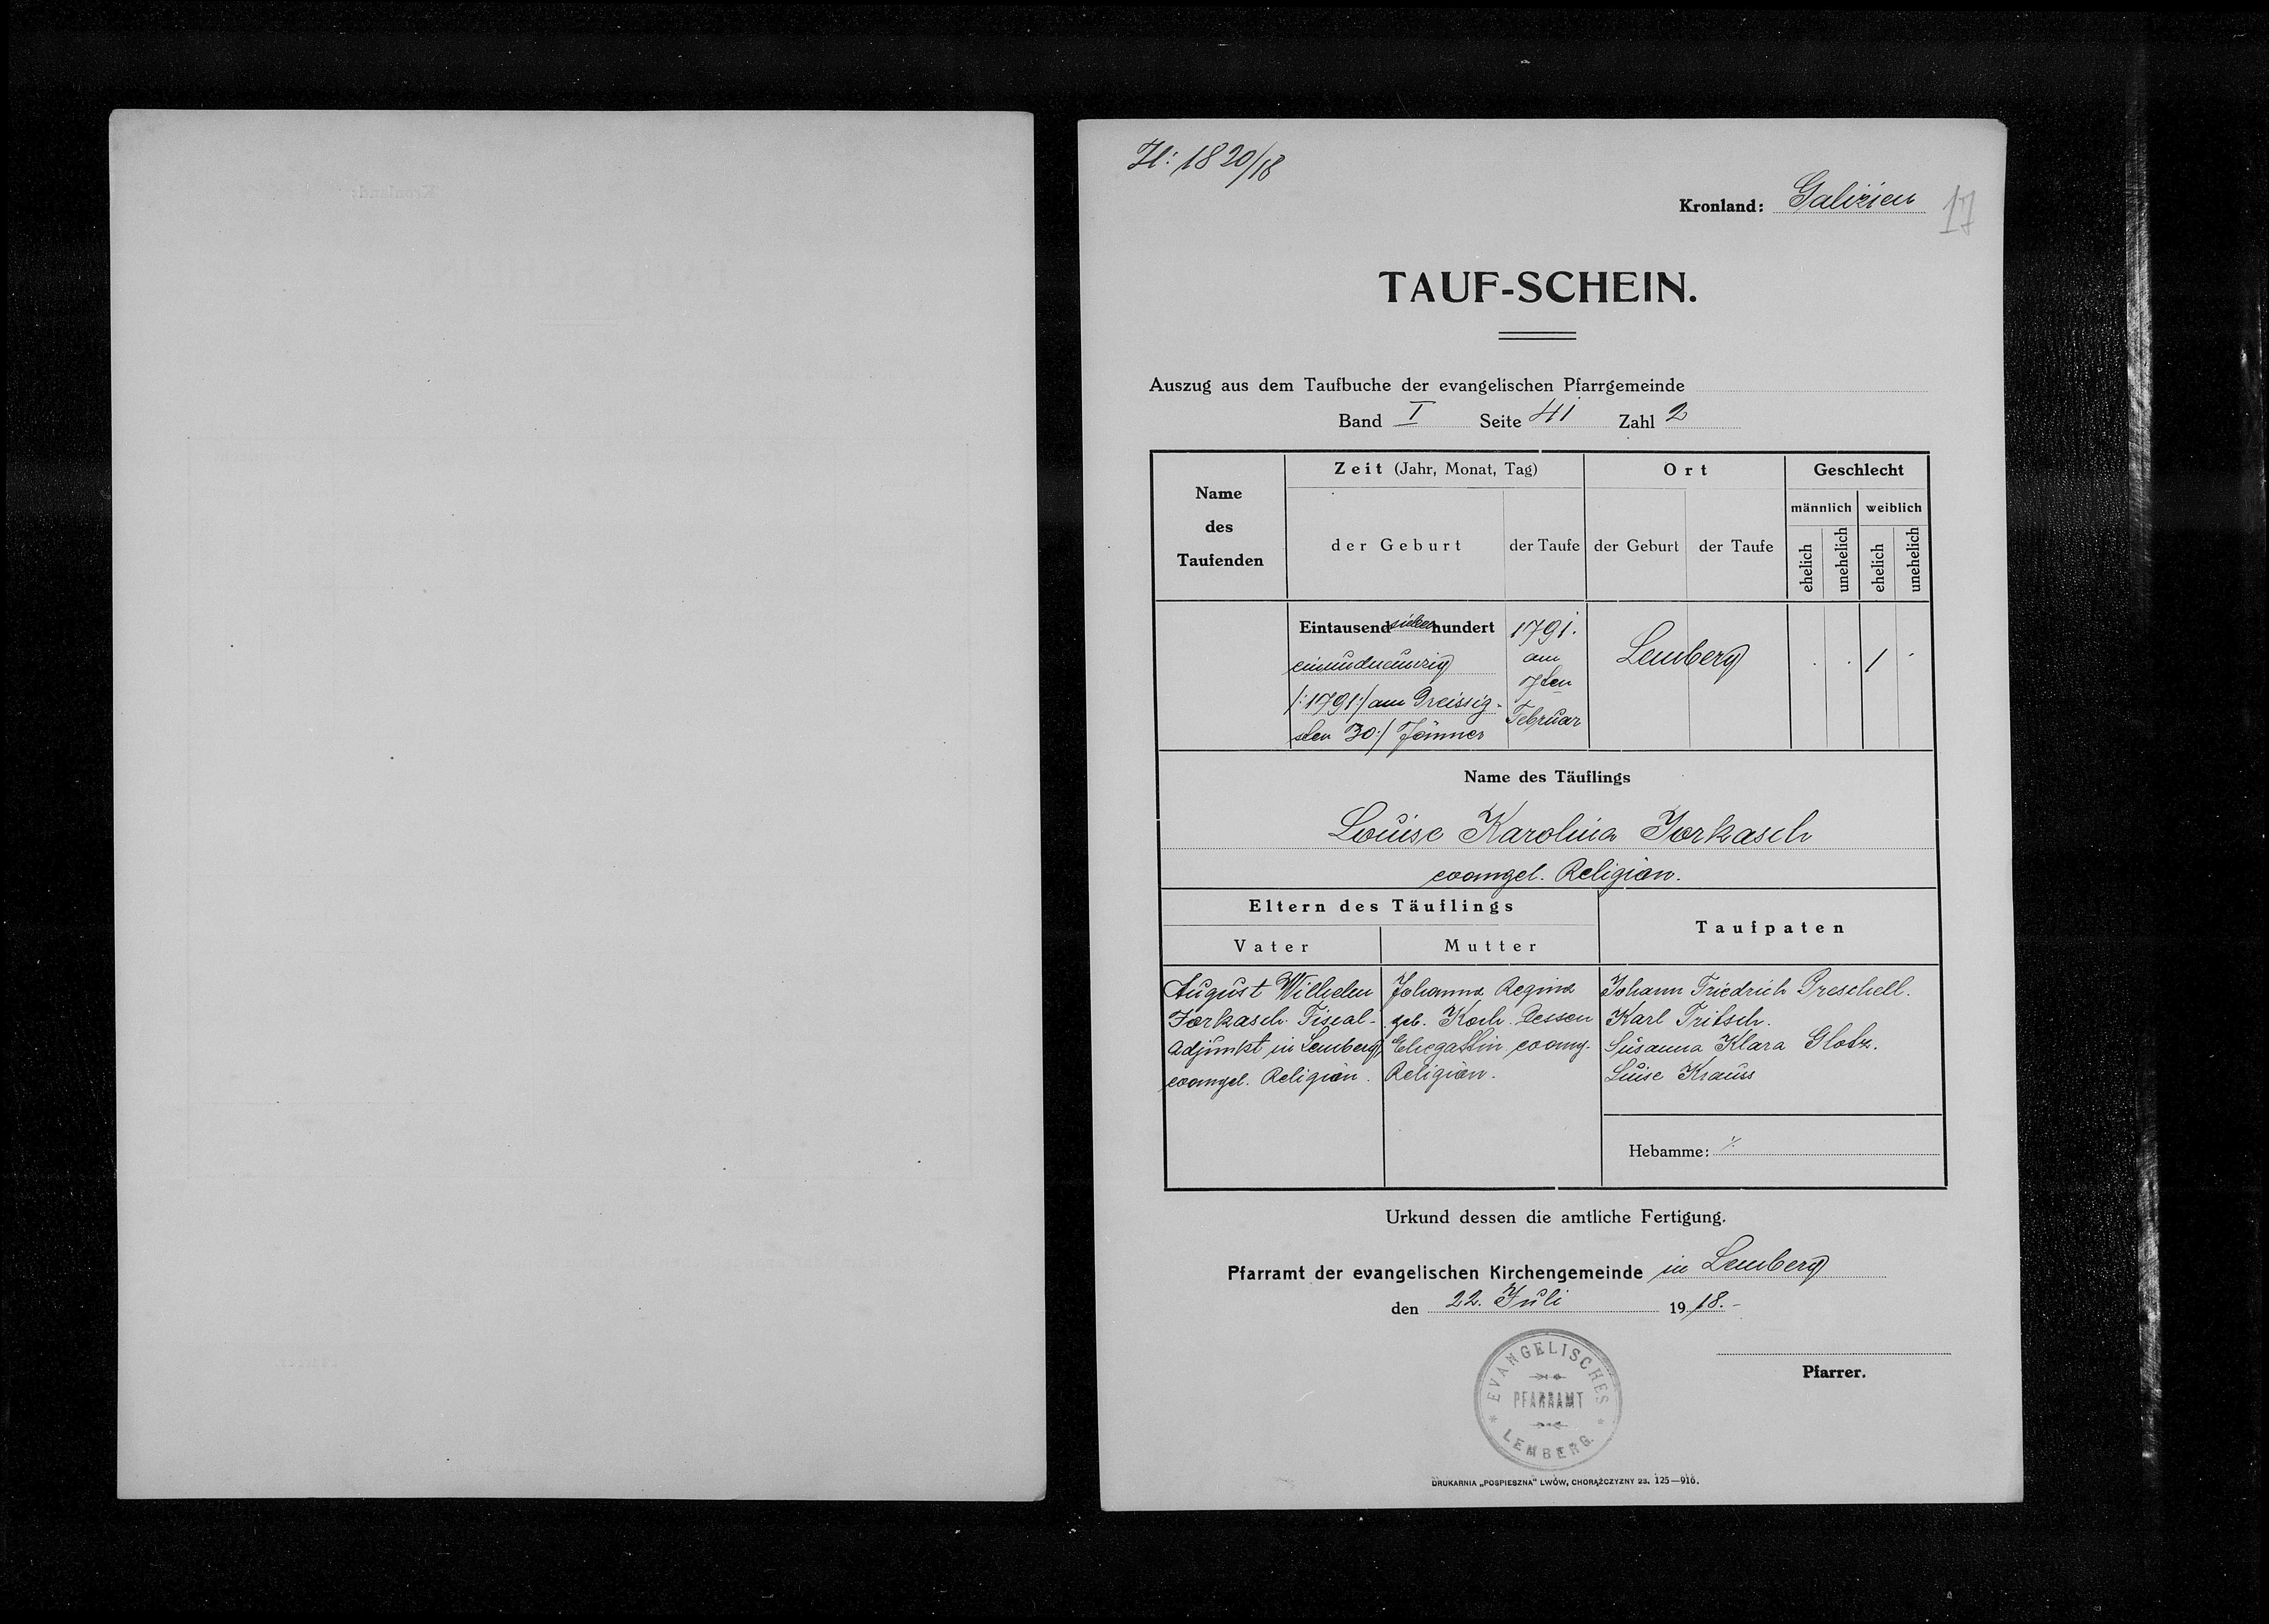 Zl: 1820/18
Kronland: Galizien
17
TAUF-SCHEIN.
Auszug aus dem Taufbuche der evangelischen Pfarrgemeinde
Band I Seite 41 Zahl 2
Name des Taufenden
Zeit (Jahr, Monat, Tag)
der Geburt
der Taufe
Ort
der Geburt
der Taufe
Geschlecht
männlich
weiblich
ehelich
unehelich
ehelich
unehelich
Eintausend sieben hundert
einundneunzig
/:1791:/ am Dreissig-
sten 30:/ Jänner
1791.
am
7ten
Februar
Lemberg
1
Name des Täuflings
Louise Karolina Jorkasch
evangel. Religion.
Eltern des Täuflings
Vater
Mutter
Taufpaten
August Wilhelm
Jorkasch Fiscal-
Adjunkt in Lemberg,
evangel. Religion.
Johanna Regina
geb. Koch. Dessen
Ehegattin evang.
Religion.
Johann Friedrich Preschell.
Karl Fritsch.
Susanna Klara Glotz.
Luise Krauss
Hebamme: ./.
Urkund dessen die amtliche Fertigung.
Pfarramt der evangelischen Kirchengemeinde in Lemberg
den 22. Juli 1918.-
Pfarrer.
EVANGELISCHES
PFARRAMT
LEMBERG.
DRUKARNIA „POSPIESZNA" LWÓW, CHORĄŻCZYZNY 23. 125—916.